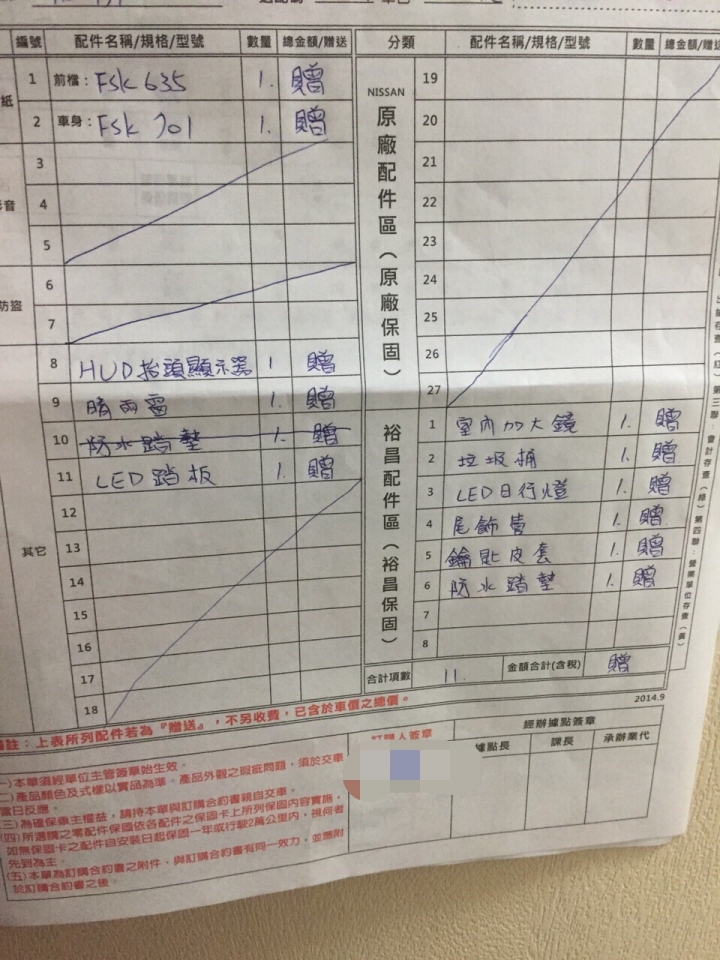 編號 配件名稱/規格/型號 數量 總金額/贈送
紙
1 前檔：FSK 635 1. 贈
2 車身：FSK 701 1. 贈
影音
3
4
5
防盜
6
7
其它
8 HUD抬頭顯示器 1 贈
9 晴雨窗 1. 贈
10 防水踏墊 1. 贈
11 LED踏板 1. 贈
12
13
14
15
16
17
18
分類 配件名稱/規格/型號 數量 總金額/贈送
NISSAN 原廠配件區（原廠保固）
19
20
21
22
23
24
25
26
27
裕昌配件區（裕昌保固）
1 室內加大鏡 1. 贈
2 垃圾桶 1. 贈
3 LED日行燈 1. 贈
4 尾飾管 1. 贈
5 鑰匙皮套 1. 贈
6 防水踏墊 1. 贈
7
8
合計項數 11. 金額合計(含稅) 贈
2014.9
備註：上表所列配件若為『贈送』，不另收費，已含於車價之總價。
(一)本單須經單位主管簽章始生效。
(二)產品顏色及式樣以實品為準。產品外觀之瑕疵問題，須於交車
當日反應。
(三)為確保車主權益，請持本單與訂購合約書親自交車。
(四)所選購之零配件保固依各配件之保固卡上所列保固內容實施，
如無保固卡之配件自安裝日起保固一年或行駛2萬公里內，視何者
先到為主。
(五)本單為訂購合約書之附件，與訂購合約書有同一效力，並應附
於訂購合約書之後。
訂購人簽章
經辦據點簽章
據點長 課長 承辦業代
第三聯：會計存查（綠）第四聯：營業單位存查（黃）